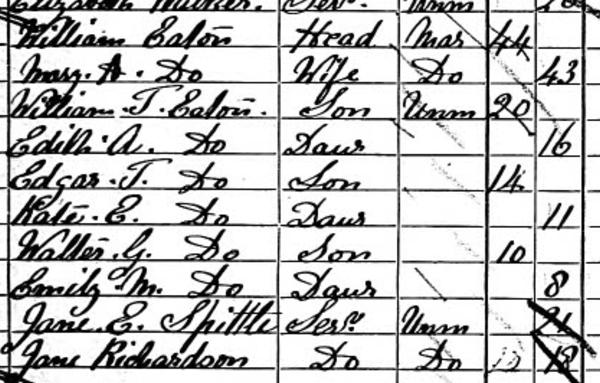 Elizabeth Walker. Serv. Unm
William Eaton Head Mar 44
Mary. A. Do Wife Do 43
William. T. Eaton. Son Unm 20
Edith. A. Do Daur 16
Edgar. T. Do Son 14
Kate. E. Do Daur 11
Walter. G. Do Son 10
Emily. M. Do Daur 8
Jane. E. Spittle Servt. Unm 21
Jane Richardson Do Do 18